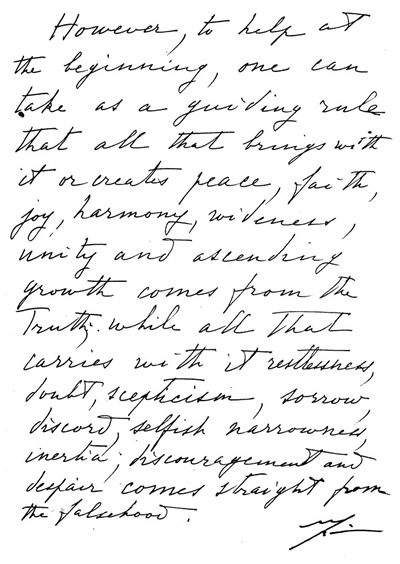 However, to help at
the beginning, one can
take as a guiding rule
that all that brings with
it or creates peace, faith,
joy, harmony, wideness,
unity and ascending
growth comes from the
Truth; while all that
carries with it restlessness,
doubt, scepticism, sorrow,
discord, selfish narrowness,
inertia, discouragement and
despair comes straight from
the falsehood.